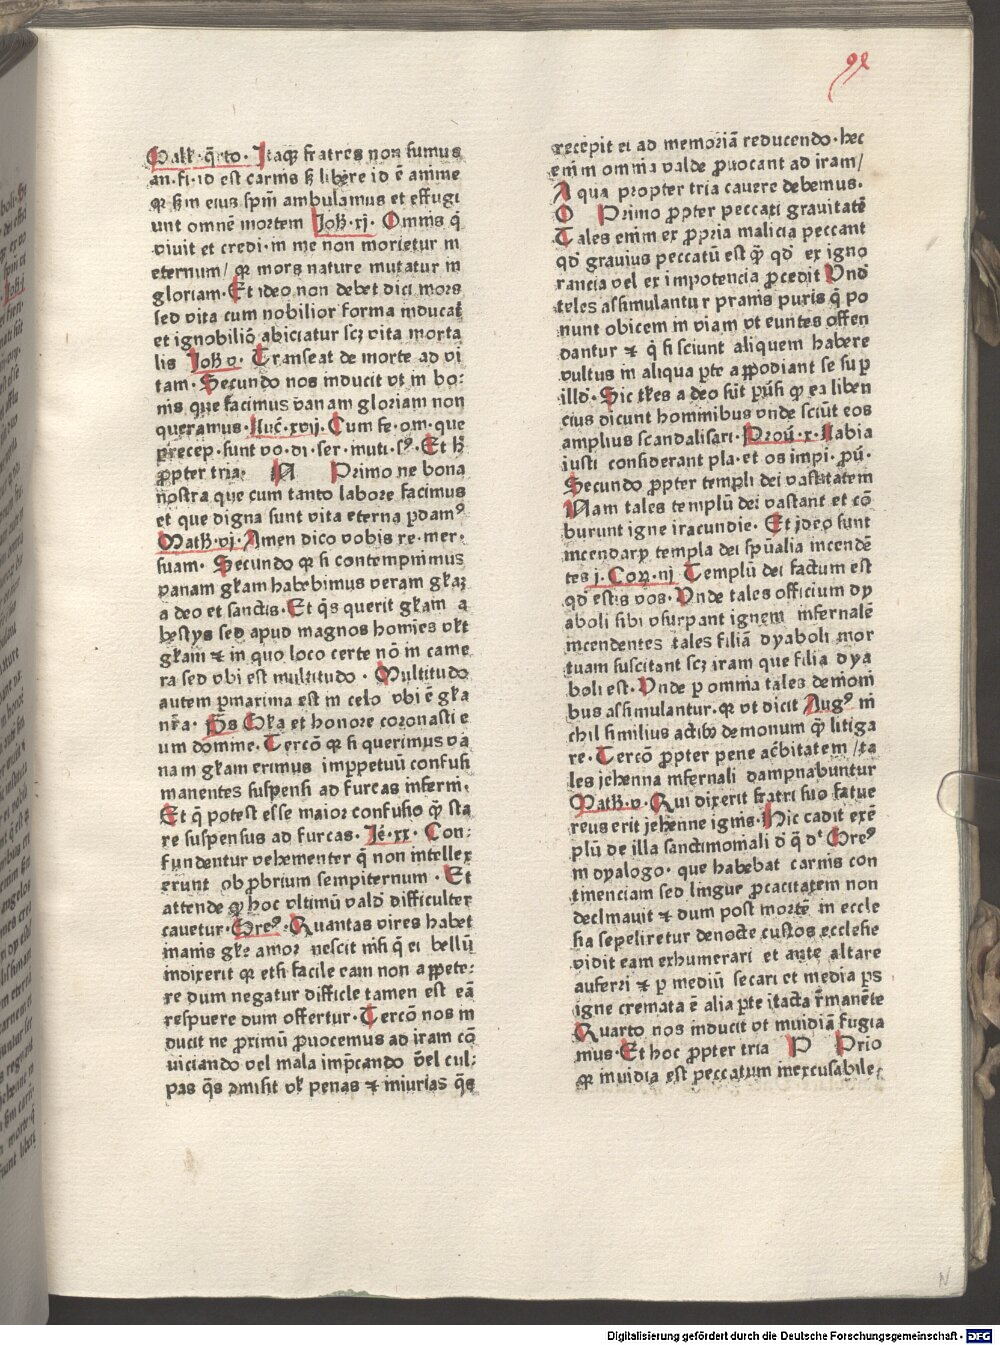 91
Galat. q̄rto. Itaqꝫ fratres non sumus
an.fi.id est carnis sꝫ libere id ē anime
qꝛ sm̄ eius spm̄ ambulamus et effugi
unt omnē mortem Joh̄.xj. Omnis q̄
viuit et credi.in me non morietur in
eternum/ qꝛ mors nature mutatur in
gloriam.Et ideo non debet dici mors
sed vita cum nobilior forma inducat̄
et ignobilio᷑ abiciatur scꝫ vita morta
lis Joh̄ v. Transeat de morte ad vi
tam.Secundo nos inducit vt in bo⸗
nis que facimus vanam gloriam non
queramus.Luc̄.xvij.Cum fe.om.que
p̄cep.sunt vo.di.ser.muti.sꝰ.Et h̄
ꝓpter tria. N Primo ne bona
nostra que cum tanto labore facimus
et que digna sunt vita eterna ꝑdamꝰ
Math̄.vj.Amen dico vobis re.mer.
suam. Secundo qꝛ si contempnimus
vanam gl̄iam habebimus veram gl̄iaꝫ
a deo et sanctis.Et q̄s querit gl̄iam a
bestys sed apud magnos homīes vl̄t
gl̄iam ⁊ in quo loco certe nō in came
ra sed vbi est multitudo . Multitudo
autem ꝑmaxima est in celo vbi ē gl̄ia
nr̄a. p̄s Gl̄ia et honore coronasti e
um domine.Tercō qꝛ si querimus va
nam gl̄iam erimus imꝑpetuū confusi
manentes suspensi ad furcas inferni.
Et q̄ potest esse maior confusio q̄ sta
re suspensus ad furcas.Je᷑.xx. Con⸗
fundentur vehementer q̄ non intellex
erunt obꝓbrium sempiternum . Et
attende qꝛ hoc vltimū vald᷑ difficulter
cauetur.Greꝰ.Quantas vires habet
inanis gl̄ie amor nescit nisi q̄ ei bellū
indixerit qꝛ etsi facile eam non appete⸗
re dum negatur difficile tamen est eā
respuere dum offertur.Tercō nos in
ducit ne proximū ꝓuocemus ad iram cō
uiciando vel mala imp̄cando v̄el cul⸗
pas q̄s amisit vl̄ penas ⁊ iniurias q̄s
recepit ei ad memoriā reducendo.hec
enim omnia valde ꝓuocant ad iram/
A qua propter tria cauere debemus.
O Primo ꝓpter peccati grauitatē
Tales enim ex ꝓpria malicia peccant
qd̄ grauius peccatū est q̄ꝫ qd̄ ex igno
rancia vel ex impotencia ꝓcedit Vnd̄
teles assimulantur prauis puris q̄ po
nunt obicem in viam vt euntes offen
dantur ⁊ q̄ si sciunt aliquem habere
vultus in aliqua ꝑte appodiant se suꝑ
illd̄.Sic tl̄es a deo sūt pūsi qꝛ ea liben
cius dicunt hominibus vnde sciūt eos
amplius scandalisari.Prou᷑.x.Labia
iusti considerant pla.et os impi.pū.
Secundo ꝓpter templi dei vastitatem
Nam tales templū dei vastant et cō
burunt igne iracundie. Et jdeo sunt
incendarꝝ templa dei spūalia incendē
tes j.Corꝝ.nj Templū dei factum est
qd̄ estis vos.Vnde tales officium dy
aboli sibi vsurpant ignem infernalē
incendentes tales filiā dyaboli mor
tuam suscitant scꝫ iram que filia dya
boli est.Vnde ꝑ omnia tales demōni
bus assimulantur.qꝛ vt dicit Augꝰ ni
chil similius actibꝰ demonum q̄ꝫ litiga
re.Tercō ꝓpter pene ac̄bitatem/ta
les jehenna infernali dampnabuntur
Math̄.v.Qui dixerit fratri suo fatue
reus erit jehenne ignis.Hic cadit exē
plū de illa sanctimoniali d̄ q̄ dt̄ Greꝰ
in dyalogo.que habebat carnis con
tinenciam sed lingue ꝓcacitatem non
declinauit ⁊ dum post mortē in eccle
sia sepeliretur denocte custos ecclesie
vidit eam exhumerari et ante altare
auferri ⁊ ꝑ mediū secari et media ꝑs
igne cremata ē alia ꝑte itacta r̄manēte
Quarto nos inducit vt inuidiā fugia
mus.Et hoc ꝓpter tria P Prio
qꝛ inuidia est peccatum inexcusabile.
N
Digitalisierung gefördert durch die Deutsche Forschungsgemeinschaft - DFG